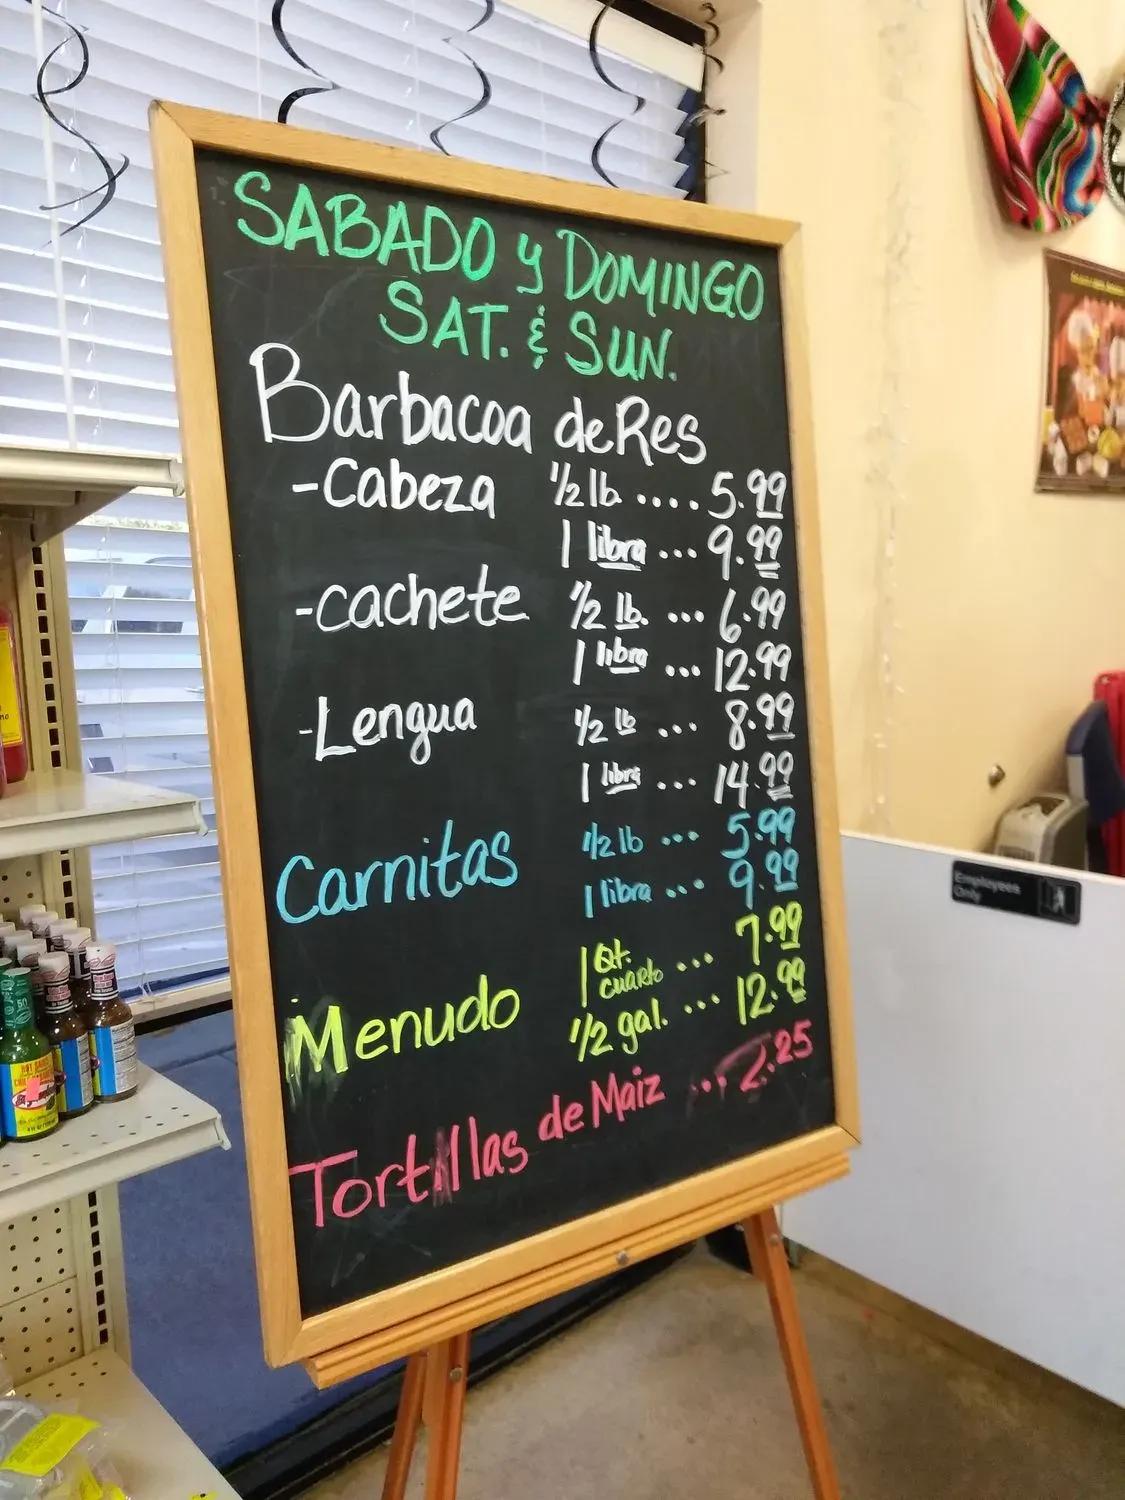 SABADO y DOMINGO
SAT. & SUN.
Barbacoa de Res
-Cabeza 1/2 lb .... 5.99
1 libra ... 9.99
-cachete 1/2 lb. ... 6.99
1 libra ... 12.99
-Lengua 1/2 lb ... 8.99
1 libra ... 14.99
Carnitas 1/2 lb ... 5.99
1 libra ... 9.99
Menudo 1 Qt. cuarto ... 7.99
1/2 gal. ... 12.99
Tortillas de Maiz ... 2.25
Employees
Only